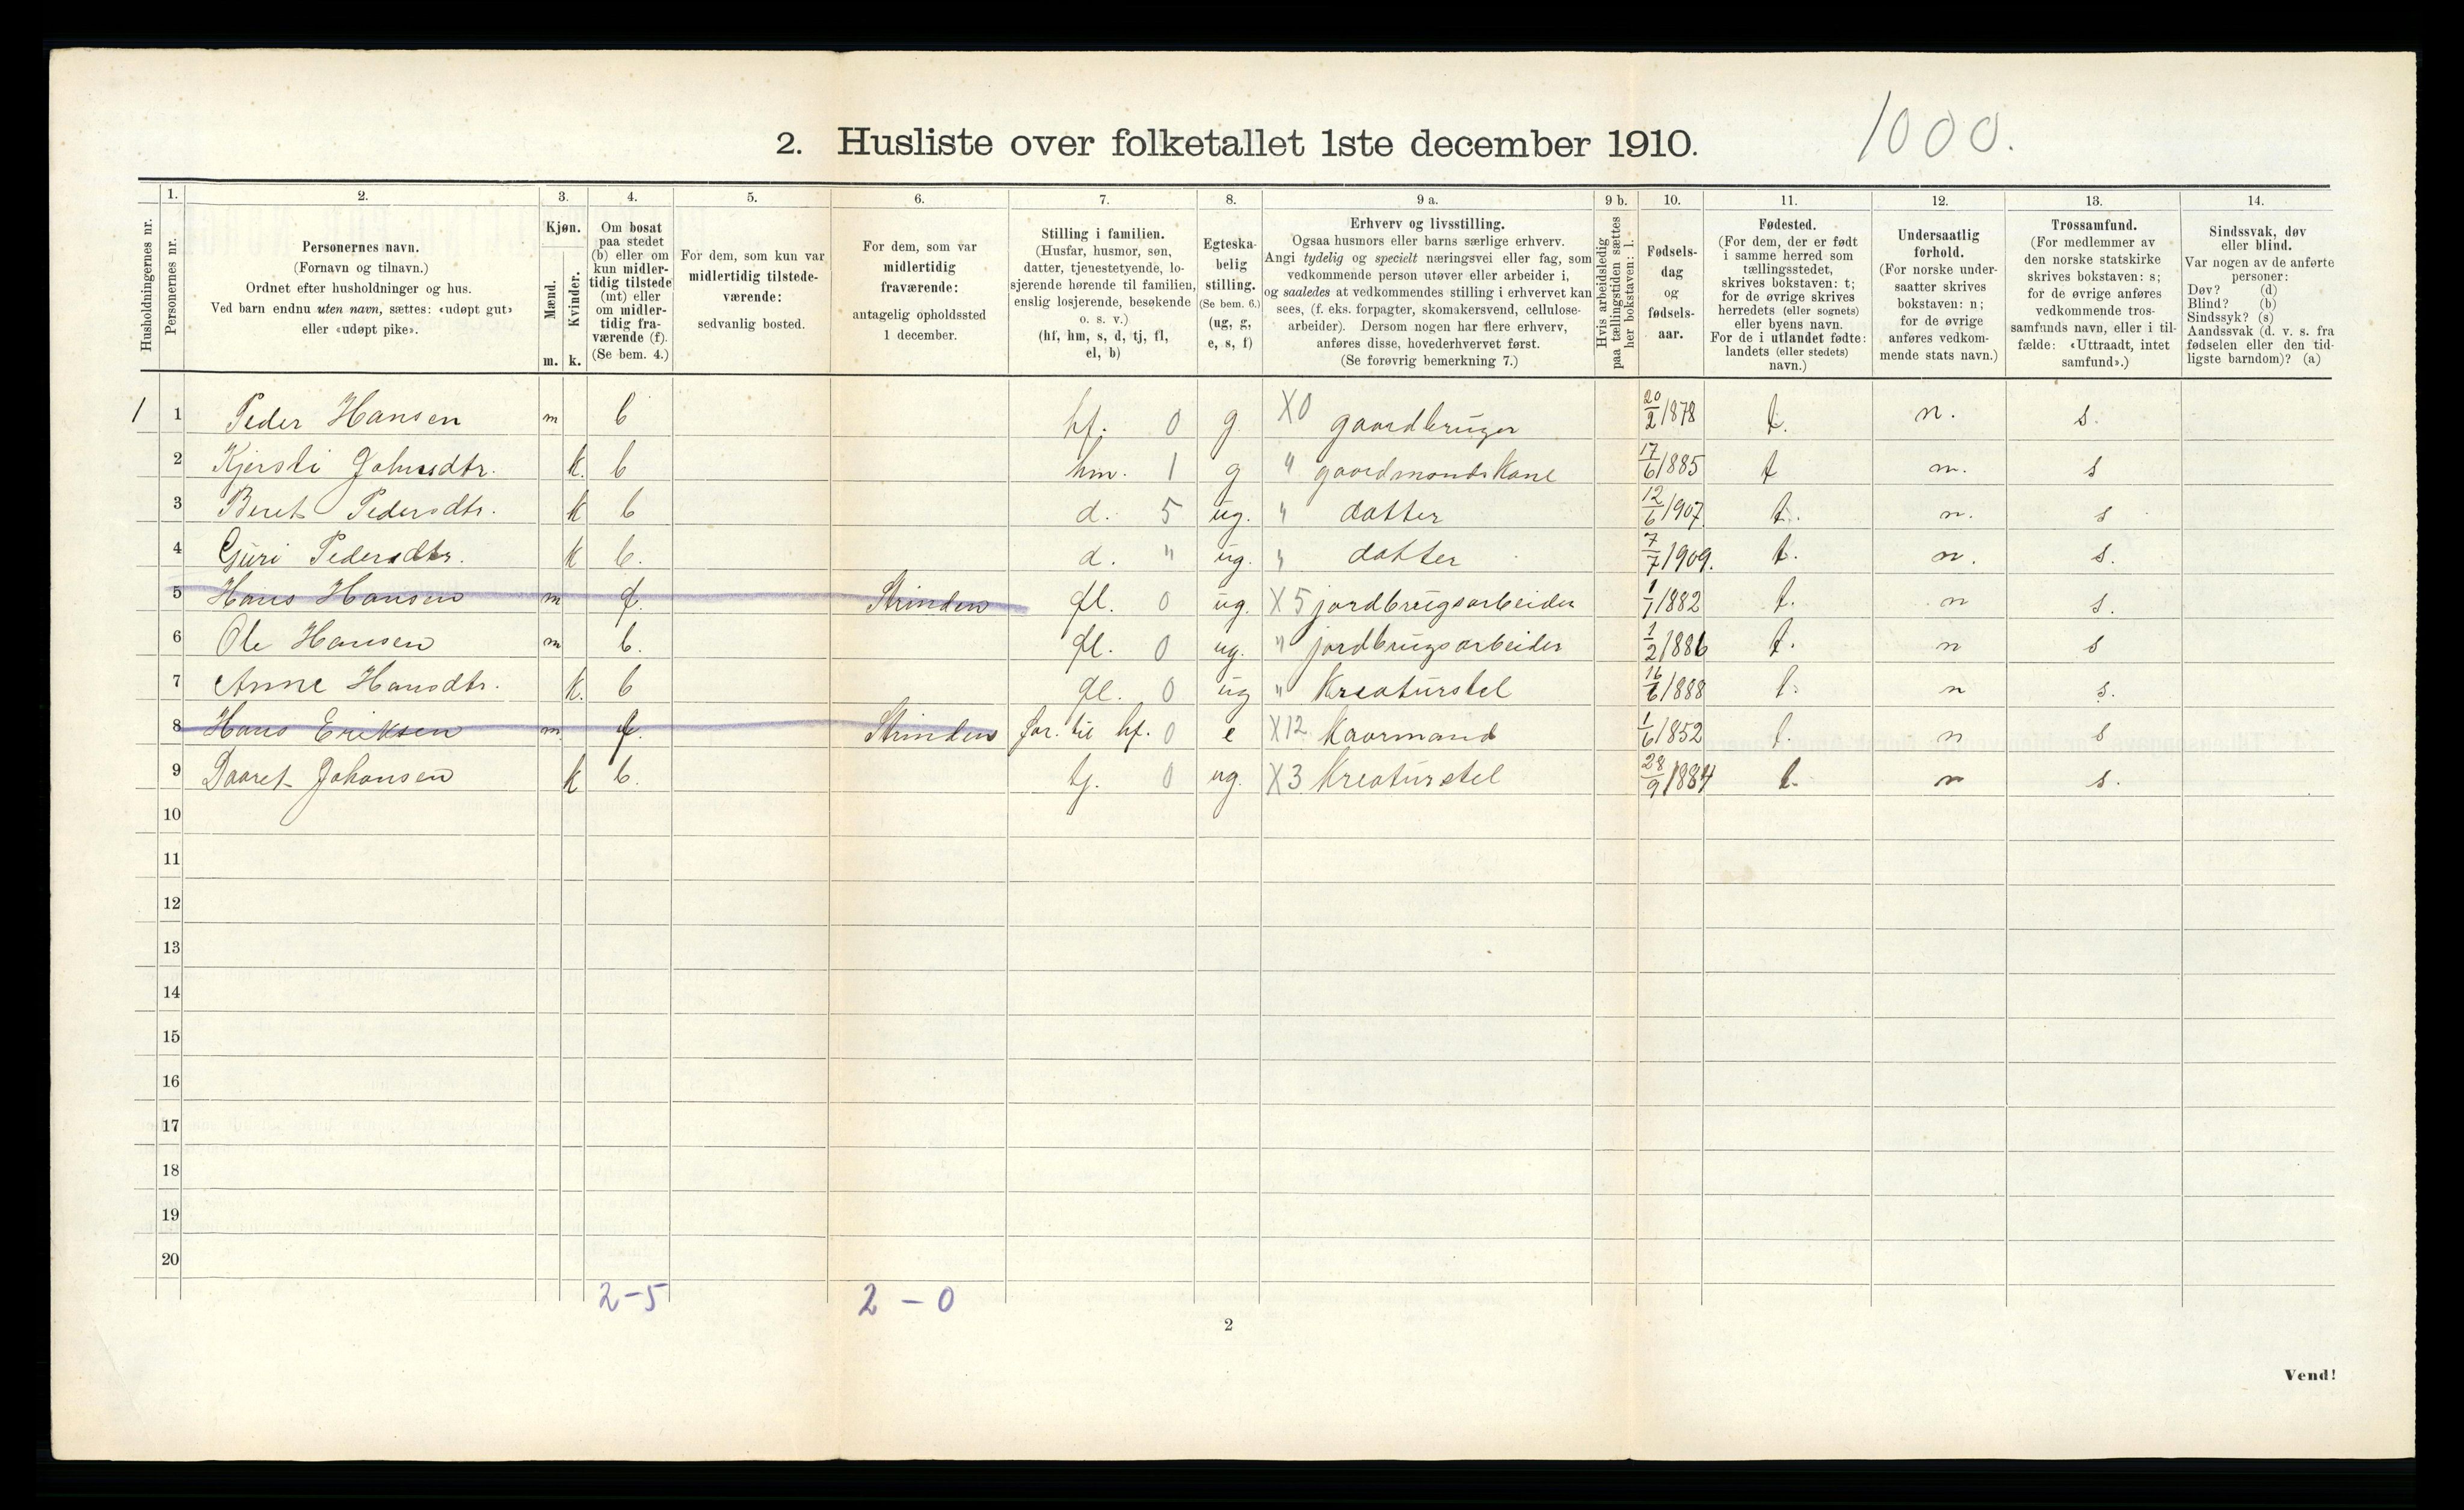 2. Husliste over folketallet 1ste december 1910. 1000.
1. 2. 3. 4. 5. 6. 7. 8. 9 a. 9 b. 10. 11. 12. 13. 14.
Husholdningernes nr.
Personernes nr.
Personernes navn.
(Fornavn og tilnavn.)
Ordnet efter husholdninger og hus.
Ved barn endnu uten navn, sættes: «udøpt gut»
eller «udøpt pike».
Kjøn.
Mænd.
Kvinder.
m. k.
Om bosat
paa stedet
(b) eller om
kun midler-
tidig tilstede
(mt) eller
om midler-
tidig fra-
værende (f).
(Se bem. 4.)
For dem, som kun var
midlertidig tilstede-
værende:
sedvanlig bosted.
For dem, som var
midlertidig
fraværende:
antagelig opholdssted
1 december.
Stilling i familien.
(Husfar, husmor, søn,
datter, tjenestetyende, lo-
sjerende hørende til familien,
enslig losjerende, besøkende
o. s. v.)
(hf, hm, s, d, tj, fl,
el, b)
Egteska-
belig
stilling.
(Se bem. 6.)
(ug, g,
e, s, f)
Erhverv og livsstilling.
Ogsaa husmors eller barns særlige erhverv.
Angi tydelig og specielt næringsvei eller fag, som
vedkommende person utøver eller arbeider i,
og saaledes at vedkommendes stilling i erhvervet kan
sees, (f. eks. forpagter, skomakersvend, cellulose-
arbeider). Dersom nogen har flere erhverv,
anføres disse, hovederhvervet først.
(Se forøvrig bemerkning 7.)
Hvis arbeidsledig
paa tællingstiden sættes
her bokstaven: l.
Fødsels-
dag
og
fødsels-
aar.
Fødested.
(For dem, der er født
i samme herred som
tællingsstedet,
skrives bokstaven: t;
for de øvrige skrives
herredets (eller sognets)
eller byens navn.
For de i utlandet fødte:
landets (eller stedets)
navn.)
Undersaatlig
forhold.
(For norske under-
saatter skrives
bokstaven: n;
for de øvrige
anføres vedkom-
mende stats navn.)
Trossamfund.
(For medlemmer av
den norske statskirke
skrives bokstaven: s;
for de øvrige anføres
vedkommende tros-
samfunds navn, eller i til-
fælde: «Uttraadt, intet
samfund».)
Sindssvak, døv
eller blind.
Var nogen av de anførte
personer:
Døv? (d)
Blind? (b)
Sindssyk? (s)
Aandssvak (d. v. s. fra
fødselen eller den tid-
ligste barndom)? (a)
1 1 Peder Hansen m b hf. 0 g X0 gaardbruger 20/2 1878 t. n. s.
2 Kjersti Johnsdtr. k. b hm. 1 g " gaardmandskone 17/6 1885 t n. s
3 Beret Pedersdtr. k b d. 5 ug. " datter 12/6 1907 t. n. s
4 Guri Pedersdtr. k b. d. " ug. " datter 7/7 1909. t. n. s.
5 Hans Hansen m f. Strinden fl. 0 ug. X5 jordbrugsarbeider 1/1 1882 t. n s.
6 Ole Hansen m b. fl. 0 ug. " jordbrugsarbeider 1/2 1886 t. n s
7 Anne Hansdtr. k. b fl. 0 ug " Kreaturstel 16/6 1888 t. n s.
8 Hans Eriksen m f. Strinden far. til hf. 0 e X12 Kaarmand 1/6 1852 t. n s
9 Daaret Johansen k b. tj. 0 ug. X3 Kreaturstel 28/9 1884 t. n s.
10
11
12
13
14
15
16
17
18
19
20
2-5 2-0
2
Vend!